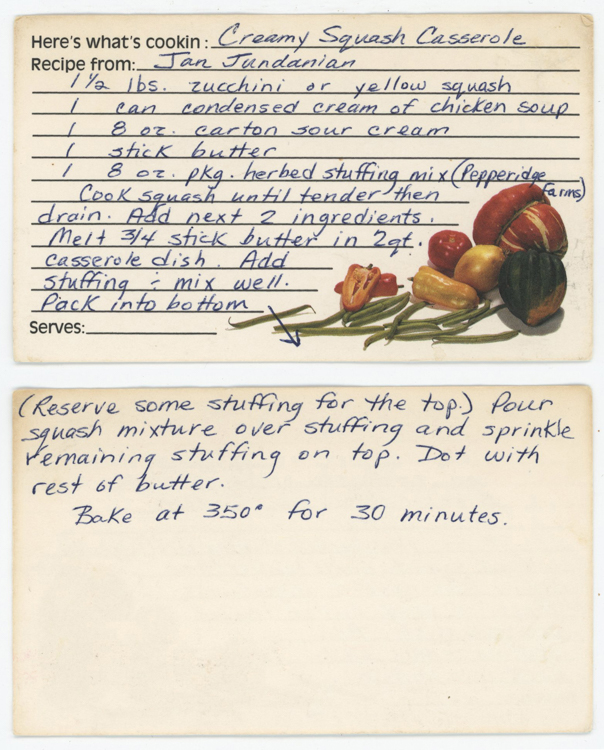 Here's what's cookin: Creamy Squash Casserole
Recipe from: Jan Jundanian
1 1/2 lbs. zucchini or yellow squash
1 can condensed cream of chicken soup
1 8 oz. carton sour cream
1 stick butter
1 8 oz. pkg. herbed stuffing mix (Pepperidge Farms)
Cook squash until tender, then
drain. Add next 2 ingredients.
Melt 3/4 stick butter in 2qt.
casserole dish. Add
stuffing ÷ mix well.
Pack into bottom
Serves:
(Reserve some stuffing for the top.) Pour
squash mixture over stuffing and sprinkle
remaining stuffing on top. Dot with
rest of butter.
Bake at 350° for 30 minutes.